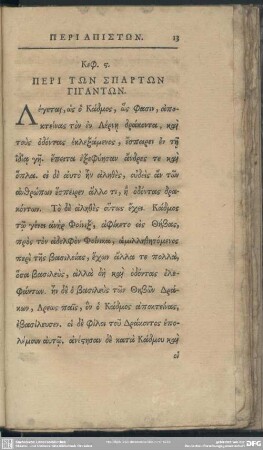 ΠΕΡΙ ΑΠΙΣΤΩΝ. 13
Κεφ. ς.
ΠΕΡΙ ΤΩΝ ΣΠΑΡΤΩΝ
ΓΙΓΑΝΤΩΝ.
Λέγεται, ὡς ὁ Κάδμος, ὥς φασιν, ἀπο-
κτείνας τὸν ἐν Λέρνῃ δράκοντα, καὶ
τοὺς ὀδόντας ἐκλεξάμενος, ἔσπειρεν ἐν τῇ
ἰδίᾳ γῇ. ἔπειτα ἐξεφύησαν ἄνδρες τε καὶ
ὅπλα. εἰ δὲ αὐτὸ ἦν ἀληθὲς, οὐδεὶς ἂν τῶν
ἀνθρώπων ἔσπειρεν ἄλλο τι, ἢ ὀδόντας δρα-
κόντων. Τὸ δὲ ἀληθὲς οὕτως ἔχει. Κάδμος
τῷ γένει ἀνὴρ Φοίνιξ, ἀφίκετο εἰς Θήβας,
πρὸς τὸν ἀδελφὸν Φοίνικα, ἁμιλλησόμενος
περὶ τῆς βασιλείας, ἔχων ἄλλα τε πολλὰ,
ὅσα βασιλεὺς, ἀλλὰ δὴ καὶ ὀδόντας ἐλε-
φάντων. ἦν δὲ ὁ βασιλεὺς τῶν Θηβῶν Δρά-
κων, Ἄρεως παῖς, ὃν ὁ Κάδμος ἀποκτείνας,
ἐβασίλευσεν. οἱ δὲ φίλοι τοῦ Δράκοντος ἐπο-
λέμουν αὐτῷ, ἀνέστησαν δὲ κατὰ Κάδμου καὶ
οἱ